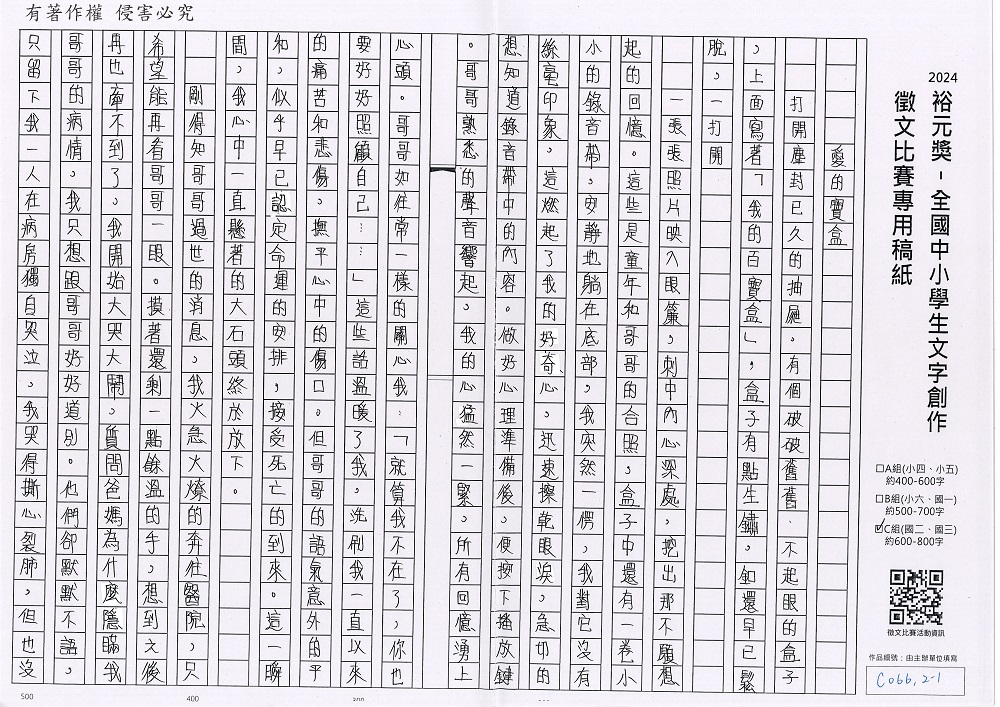 有著作權 侵害必究
2024
裕元獎-全國中小學生文字創作
徵文比賽專用稿紙
□A組(小四、小五)
約400-600字
□B組(小六、國一)
約500-700字
☑C組(國二、國三)
約600-800字
徵文比賽活動資訊
作品編號:由主辦單位填寫
C066,2-1
愛的寶盒
打開塵封已久的抽屜。有個破破舊舊、不起眼的盒子
,上面寫著「我的百寶盒」,盒子有點生鏽。釦環早已鬆
脫,一打開
一張張照片映入眼簾,刺中內心深處,挖出那不願想
起的回憶。這些是童年和哥哥的合照,盒子中還有一卷小
小的錄音帶。安靜地躺在底部,我突然一愣,我對它沒有
絲毫印象。這燃起了我的好奇心。迅速擦乾眼淚。急切的
想知道錄音帶中的內容。做好心理準備後。便按下播放鍵
。哥哥熟悉的聲音響起。我的心猛然一緊。所有回憶湧上
心頭。哥哥如往常一樣的關心我:「就算我不在了,你也
要好好照顧自己……」這些話溫暖了我。洗刷我一直以來
的痛苦和悲傷。撫平心中的傷口。但哥哥的語氣意外的平
和。似乎早已認定命運的安排,接受死亡的到來。這一瞬
間,我心中一直懸著的大石頭終於放下。
剛得知哥哥過世的消息。我火急火燎的奔往醫院,只
希望能再看哥哥一眼。摸著還剩一點餘溫的手,想到之後
再也牽不到了。我開始大哭大鬧。質問爸媽為什麼隱瞞我
哥哥的病情。我只想跟哥哥好好道別。他們卻默默不語。
只留下我一人在病房獨自哭泣。我哭得撕心裂肺,但也沒
500
400